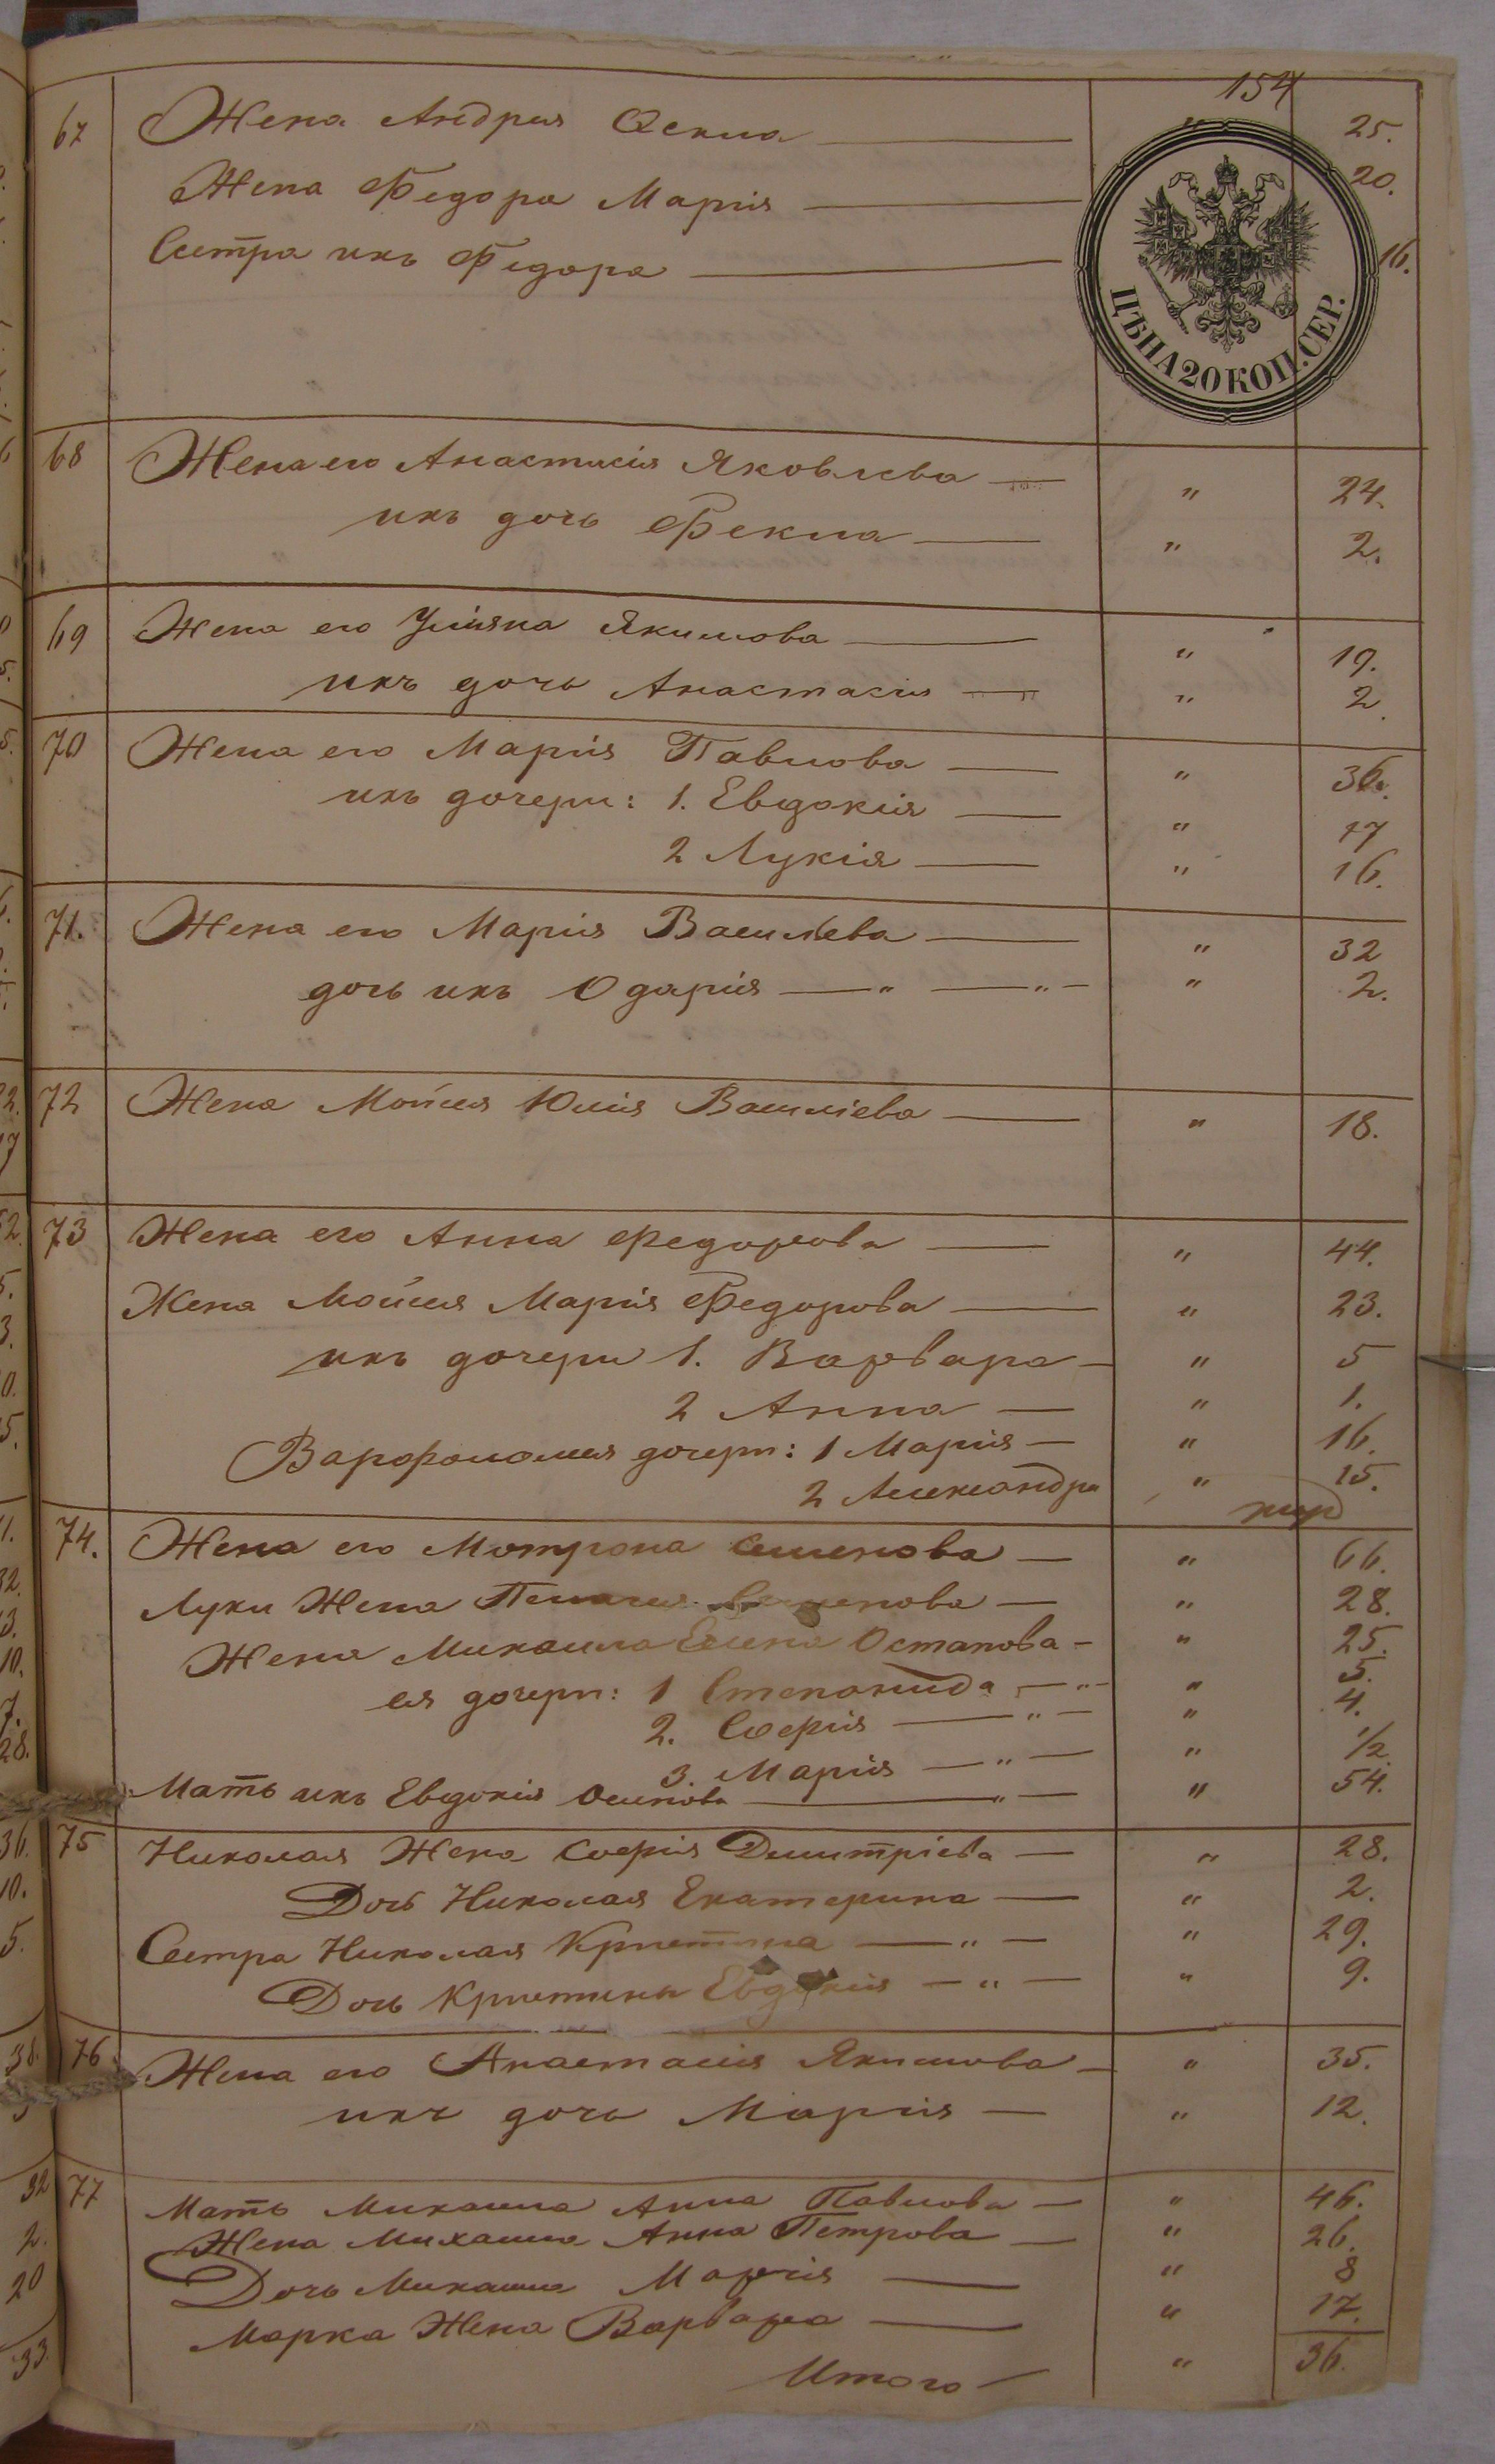 154
67 Жена Андрея Фекла — " 25.
Жена Федора Марія — 20.
Сестра ихъ Федора — 16.
ЦѢНА 20 КОП. СЕР.
68 Жена его Анастасія Яковлева — " 24.
ихъ дочь Фекла — " 2.
69 Жена его Уліяна Якимова — " 19.
ихъ дочь Анастасія — " 2
70 Жена его Марія Павлова — " 36.
ихъ дочери: 1. Евдокія — " 17
2 Лукія — " 16.
71. Жена его Марія Васильева — " 32
дочь ихъ Одарія — " — " — " 2.
72 Жена Мойсея Юлія Васильева — " 18.
73 Жена его Анна Федорова — " 44.
Жена Мойсея Марія Федорова — " 23.
ихъ дочери 1. Варвара — " 5
2 Анна — " 1.
Варфоломея дочери: 1 Марія — " 16.
2 Александра " 15.
74. Жена его Мотрона Семенова — " 66.
Луки Жена Пелагея Семенова — " 28.
Жена Михаила Елена Остапова — " 25.
ея дочери: 1 Степанида — " — " 5.
2. Софія — " — " 4.
3. Марія — " — " 1/2
Мать ихъ Евдокія Осипова — " — " 54.
75 Николая Жена Софія Дмитріева — " 28.
Дочь Николая Екатерина — " 2.
Сестра Николая Кристина — " — " 29.
Дочь Кристины Евдокія — " — " 9.
76 Жена его Анастасія Якимова — " 35.
ихъ дочь Марія — " 12.
77 Мать Михаила Анна Павлова — " 46.
Жена Михаила Анна Петрова — " 26.
Дочь Михаила Марія — " 8
Марка Жена Варвара — " 17.
Итого — " 36.